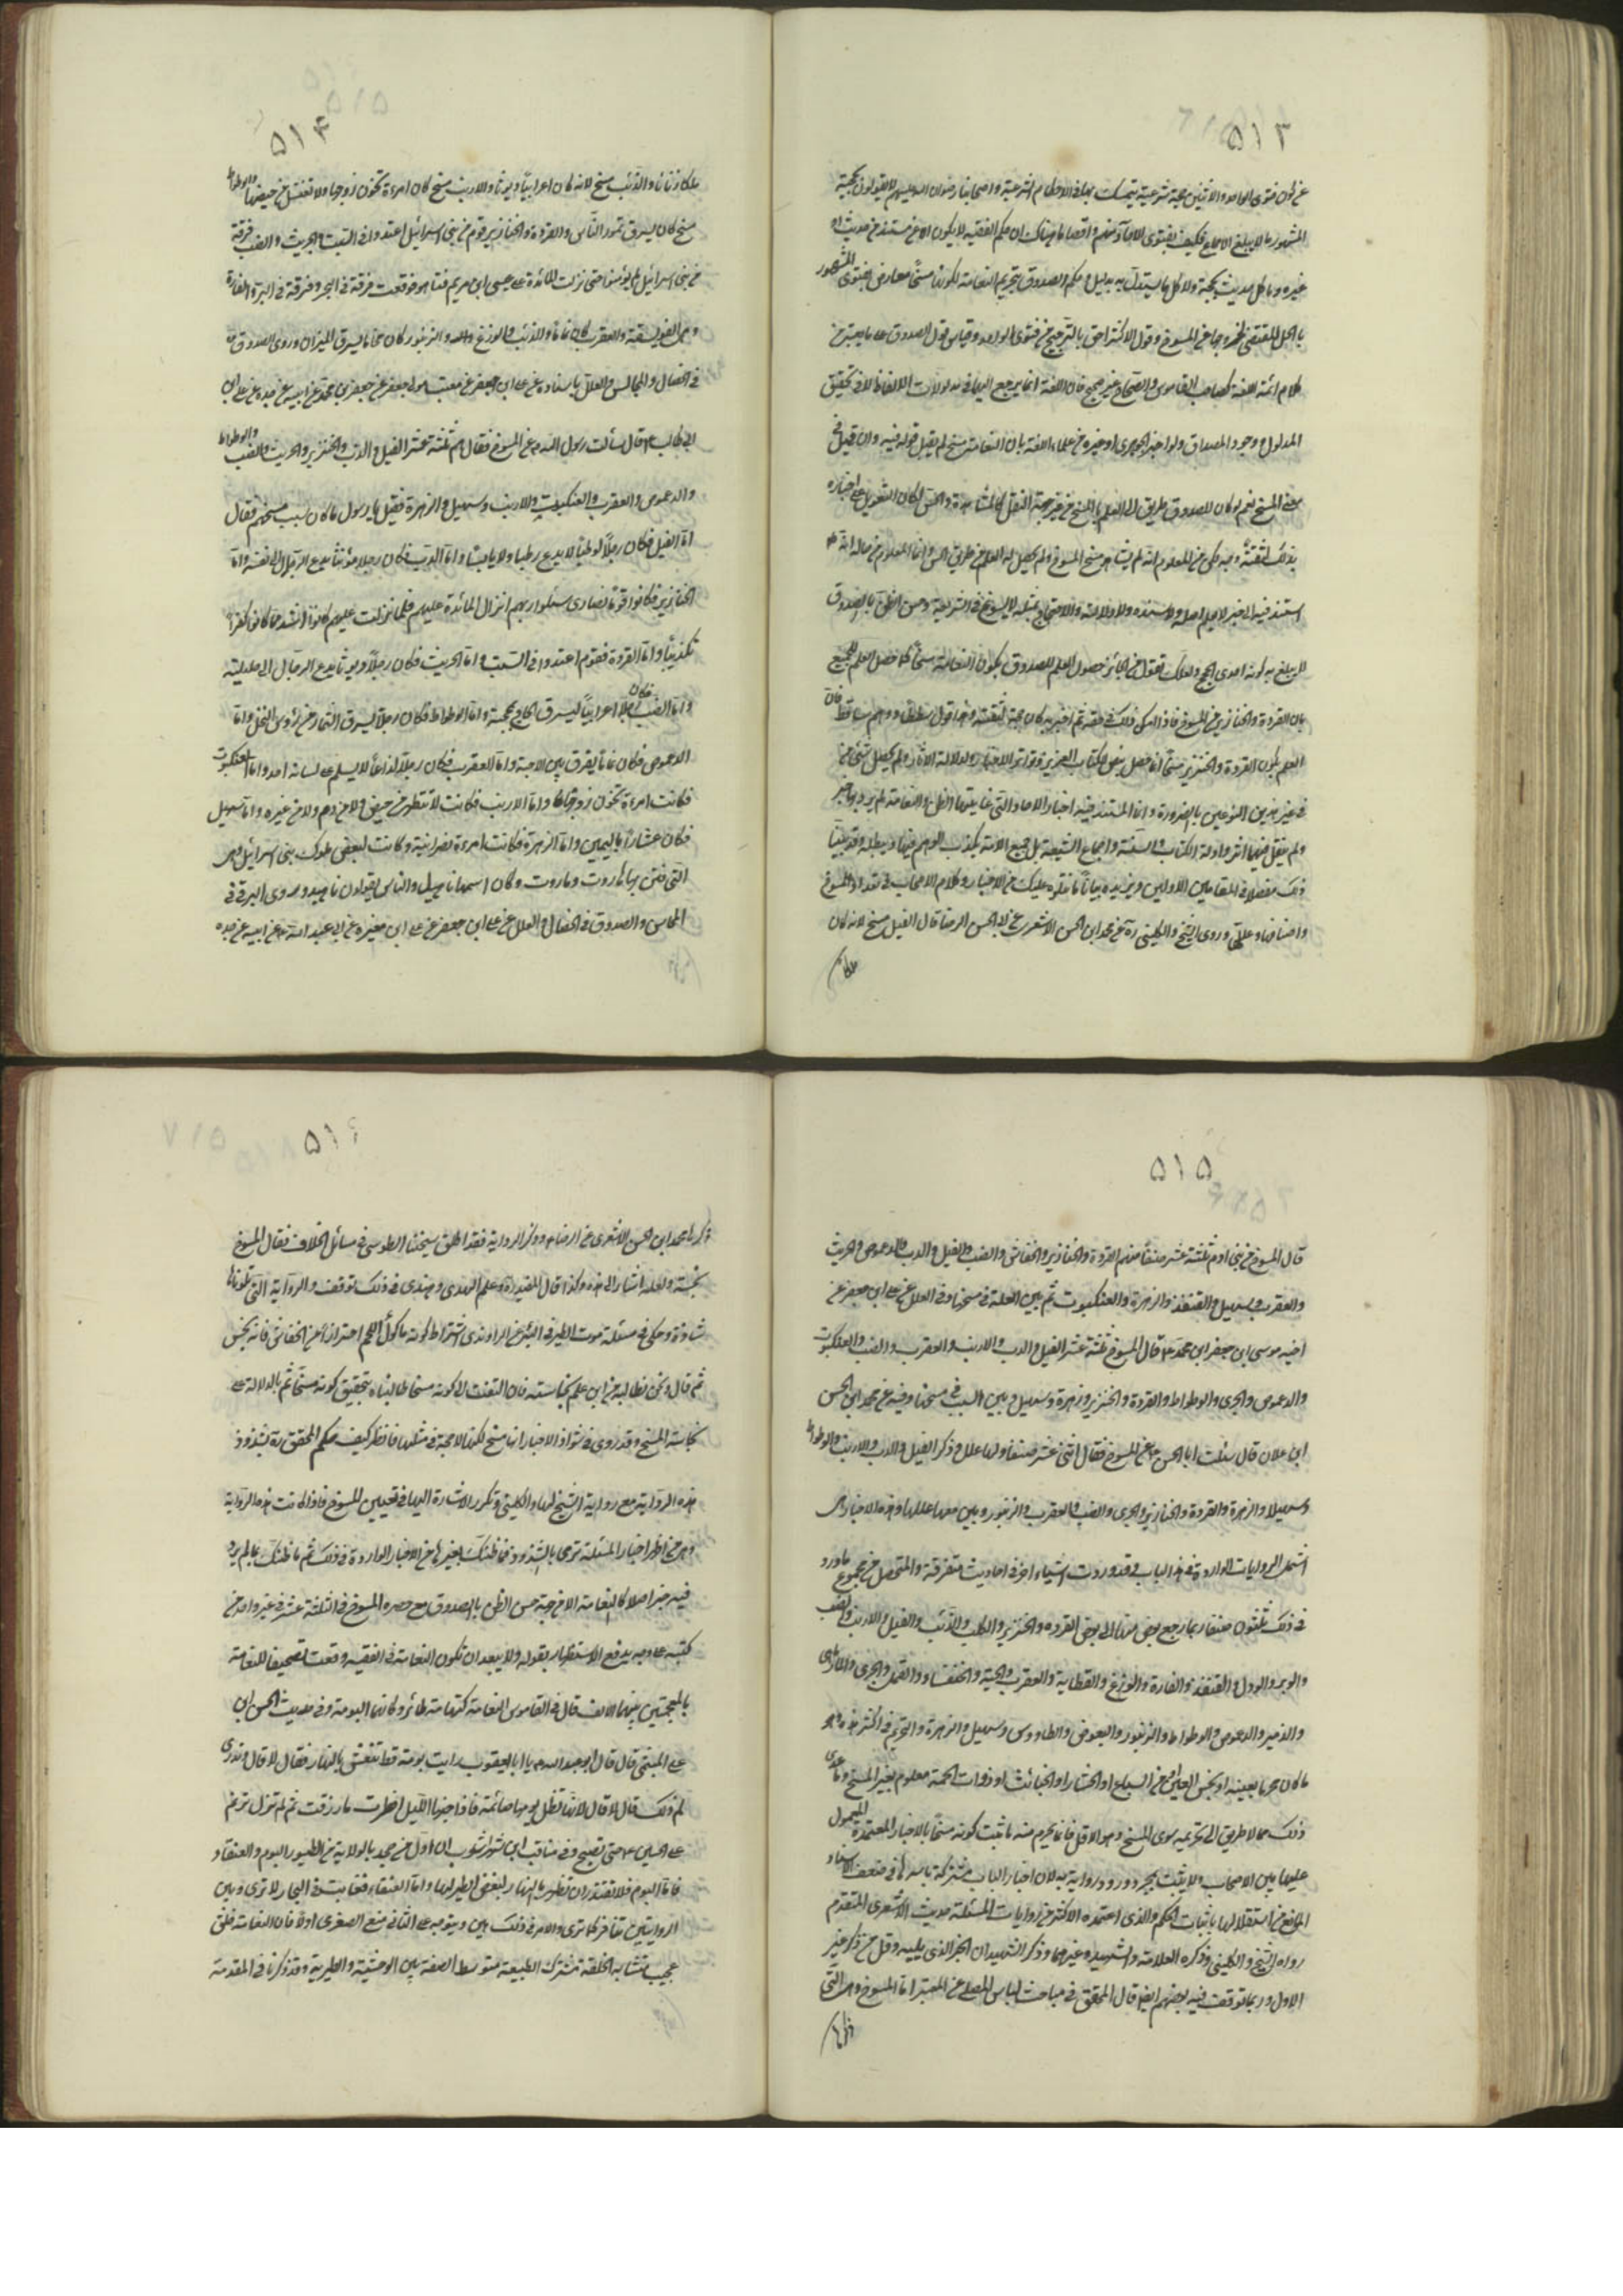 ٥١٣
عن كون فتوى الواحد والاثنين حجة شرعية يتمسك بها في الاحكام الشرعية واصحابنا رضوان الله عليهم لا يقولون بحجية
المشهور ما لا يبلغ الاجماع فكيف بفتوى الآحاد منهم واقصى ما هناك ان حكم الفقيه لا يكون الا عن مستند من حديث او
غيره وما كل حديث بحجة ولا كل ما يستدل به بدليل وحكم الصدوق بتحريم النعامة لكونها مسخا معارض بفتوى المشهور
بالحل المقتضي لخروجها عن المسوخ وقول الاكثر احق بالترجيح من فتوى الواحد وقياس قول الصدوق على ما يعتبر من
كلام ائمة اللغة كصاحب القاموس والصحاح غير صحيح فان اللغة انما يرجع اليها في مدلولات الالفاظ لا في تحقيق
المدلول ووجود المصداق ولو اخبر الجوهري او غيره من علماء اللغة بان النعامة مسخ لم يقبل قوله فيه وان قبل في
معنى المسخ نعم لو كان للصدوق طريق الى العلم بالمسخ من غير جهة النقل كالمشاهدة والحس لكان التعويل على اخباره
بذلك لثقته وجه لكن من المعلوم انه لم يشاهد مسخ المسوخ ولم يحصل له العلم من طريق الحس وانما المعلوم من حاله انه
استند فيه الى خبر لا يعلم اصله ولا سنده ولا دلالته والاحتجاج بمثله لا يسوغ في الشريعة وحسن الظن بالصدوق
لا يبلغ به كونه احدى الحجج ولعلك تقول من الجائز حصول العلم للصدوق بكون النعامة مسخا كما حصل العلم للجميع
بان القردة والخنازير من المسوخ فاذا امكن ذلك في حقه ثم اخبر به كان حجة لثقته وهذا قول ساقط ووهم ساقط فان
العلم بكون القردة والخنزير مسخا انما حصل بنص الكتاب العزيز وتواتر الاخبار ودلالة الآثار ولم يحصل شئ من
في غير هذين النوعين بالضرورة وانما المستند فيه اخبار الآحاد التي غايتها الظن والنعامة لم يرد بها خبر
ولم ينقل فيها اثر وادلة الكتاب والسنة واجماع الشيعة بل جميع الامة يكذب الوهم فيها ويبطله وقد بينا
ذلك مفصلا في المقامين الاولين ويزيده بيانا ما نتلوه عليك من الاخبار وكلام الاصحاب في تعداد المسوخ
واصنافها وعللها وروى الشيخ والكليني ره عن محمد ابن الحسن الاشعري عن ابي الحسن الرضا قال الفيل مسخ لانه كان
ملكا
٥١٤
ملكا زناءا والذئب مسخ لانه كان اعرابيا ديوثا والارنب مسخ كان امرءة تخون زوجها ولا تغتسل من حيضها والوطواط
مسخ كان يسرق تمور الناس والقردة والخنازير قوم من بني اسرائيل اعتدوا في السبت والجريث والضب فرقة
من بني اسرائيل لم يؤمنوا حتى نزلت المائدة على عيسى ابن مريم فتاهوا فوقعت فرقة في البحر وفرقة في البر والفارة
وهي الفويسقة والعقرب كان نماما والدب والوزغ والله والزنبور كان لحاما يسرق الميزان وروى الصدوق ره
في الخصال والمجالس والعلل باسناده عن علي ابن جعفر عن معتب مولى جعفر عن جعفر بن محمد عن ابيه عن جده عن علي ابن
ابي طالب ع قال سألت رسول الله ص عن المسوخ فقال هم ثلثة عشر الفيل والدب والخنزير والجريث والضب والوطواط
والدعموص والعقرب والعنكبوت والارنب وسهيل والزهرة فقيل يا رسول ما كان سبب مسخهم فقال
اما الفيل فكان رجلا لوطيا لا يدع رطبا ولا يابسا واما الدب فكان رجلا مؤنثا يدع الرجال الى نفسه واما
الخنازير فكانوا قوما نصارى سئلوا ربهم انزال المائدة عليهم فلما نزلت عليهم كانوا اشد ما كانوا كفرا
تكذيبا واما القردة فقوم اعتدوا في السبت واما الجريث فكان رجلا ديوثا يدع الرجال الى حليلته
واما الضب فكان رجلا اعرابيا يسرق الحاج بمحجنه واما الوطواط فكان رجلا يسرق الثمار من رؤس النخل واما
الدعموص فكان نماما يفرق بين الاحبة واما العقرب فكان رجلا لذاعا لا يسلم على لسانه احد واما العنكبوت
فكانت امرءة تخون زوجها واما الارنب فكانت لا تتطهر من حيض ولا من دم ولا من غيره واما سهيل
فكان عشارا باليمن واما الزهرة فكانت امرءة نصرانية وكانت لبعض ملوك بني اسرائيل وهي
التي فتن بها هاروت وماروت وكان اسمها ناهيل والناس يقولون ناهيد وروى البرقي في
المحاسن والصدوق في الخصال والعلل عن علي ابن جعفر عن علي ابن مغيرة عن ابي عبد الله ع عن ابيه عن جده
٥١٥
قال المسوخ من بني ادم ثلثة عشر صنفا منهم القردة والخنازير والخفاش والضب والفيل والدب والدعموص والجريث
والعقرب وسهيل والقنفذ والزهرة والعنكبوت ثم بين العلة في مسخها وفي العلل عن علي ابن جعفر عن
اخيه موسى ابن جعفر ابن محمد ع قال المسوخ ثلثة عشر الفيل والدب والارنب والعقرب والضب والعنكبوت
والدعموص والجري والوطواط والقردة والخنزير وزهرة وسهيل وبين السبب في مسخها وفيه عن محمد ابن الحسن
ابن علان قال سئلت ابا الحسن ع عن المسوخ فقال اثنى عشر صنفا ولها علل وذكر الفيل والدب والارنب والوطواط
وسهيلا والزهرة والقردة والخنازير والجري والضب والعقرب والزنبور وبين معها عللها وهذه الاخبار هي
اشهر الروايات الواردة في هذا الباب وقد وردت اشياء اخر في احاديث متفرقة والمتحصل من مجموع ما ورد
في ذلك ثلثون صنفا ربما رجع بعض منها الى بعض القرده والخنزير والكلب والذئب والفيل والارنب والضب
والوبر والورل والقنفذ والفارة والوزغ والعظاية والعقرب والحية والخنفساء والقمل والجري والمارماهي
والزمير والدعموص والوطواط والزنبور والبعوض والطاووس وسهيل والزهرة والتحريم في اكثر هذه وهو
ما كان محرما بعينه او نجس العين او من السباع او الحشار او الخبائث او ذوات الحمة معلوم بغير المسخ وما عدى
ذلك مما لا طريق الى تحريمه سوى المسخ وهو الاقل فانما يحرم منه ما ثبت كونه مسخا بالاخبار المعتمدة المعمول
عليها بين الاصحاب ولا يثبت بمجرد ورود رواية به لان اخبار الباب مشتركة باسرها في ضعف الاسناد
المانع من استقلالها باثبات الحكم والذي اعتمده الاكثر من روايات المسئلة حديث الاشعري المتقدم
رواه الشيخ والكليني وذكره العلامة والشهيد وغيرهما وذكر الشهيدان الخبر الذي يليه وقل من ذكر غير
الاول وربما توقف فيه بعضهم ايضا قال المحقق في مباحث لباس المصلي من المعتبر اما المسوخ وهي التي
ذكرها
٥١٦
ذكرها محمد ابن الحسن الاشعري عن الرضا ع وذكر الرواية فقد اطلق شيخنا الطوسي في مسائل الخلاف فقال المسوخ
نجسة ولعله اشار الى هذه وكذا قال المفيد ره وعلم الهدى وعندي في ذلك توقف والرواية التي تلوناها
شاذة وحكى في مسئلة موت الطير في البئر عن الراوندي اشتراط كونه مأكول اللحم احترازا من الخفاش فانه نجس
ثم قال ونحن نطالبه من اين علم نجاسته فان التفت الى كونه مسخا طالبناه بتحقيق كونه مسخا ثم بالدلالة على
نجاسة المسخ وقد روى في شواذ الاخبار انها مسخ لكنها لا حجة في مثلها فانظر كيف حكم المحقق ره بشذوذ
هذه الرواية مع رواية الشيخ لها والكليني وتكرر الاشارة اليها في تعيين المسوخ فاذا كانت هذه الرواية
وهي من اظهر اخبار المسئلة ترمى بالشذوذ فما ظنك بغيرها من الاخبار الواردة في ذلك ثم ما ظنك بما لم يرد
فيه خبر اصلا كالنعامة الا من جهة حسن الظن بالصدوق مع حصره المسوخ في الثلثة عشر في غير واحد من
كتبه على وجه يدفع الاستظهار بقوله ولا يبعد ان تكون النعامة في الفقيه وقعت تصحيفا للنغامة
بالمعجمتين بينهما الالف قال في القاموس النغامة كتهامة طائر وكانها البومة وفي حديث الحسن ابن
علي الميثمي قال قال ابو عبد الله ع يا ابا يعقوب رايت بومة قط تنفش بالنهار فقال لا قال وتدري
لم ذلك قال لا قال لانها تظل يومها صائمة فاذا جنها الليل افطرت ما رزقت ثم لم تزل ترنم
على الحسين ع حتى تصبح وفي مناقب ابن شهراشوب ان اول من جحد بالولاية من الطيور البوم والعنقاء
فاما البوم فلا تقدر ان تظهر بالنهار لبغض الطير لها واما العنقاء فغابت في البحار لا ترى وبين
الروايتين تنافر كما ترى والامر في ذلك هين ويتوجه على الثاني منع الصغرى اولا فان النعامة خلق
عجيب متشابه الخلقة مشترك الطبيعة متوسط الصفة بين الوحشية والطيرية وقد ذكرنا في المقدمة